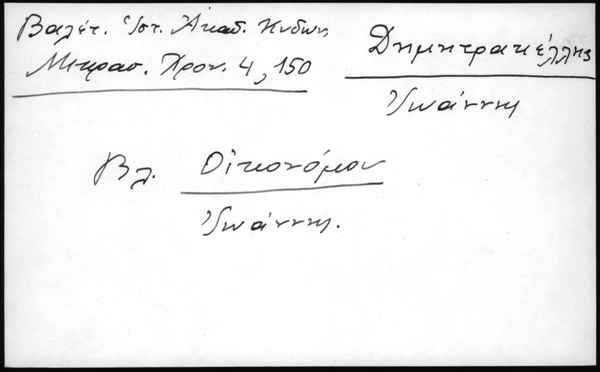 Βαλέτ. Ἱστ. Ἀκαδ. Κυδων.
Μικρασ. Χρον. 4, 150
Δημητρακέλλης
Ἰωάννης
Βλ. Οἰκονόμου
Ἰωάννης.